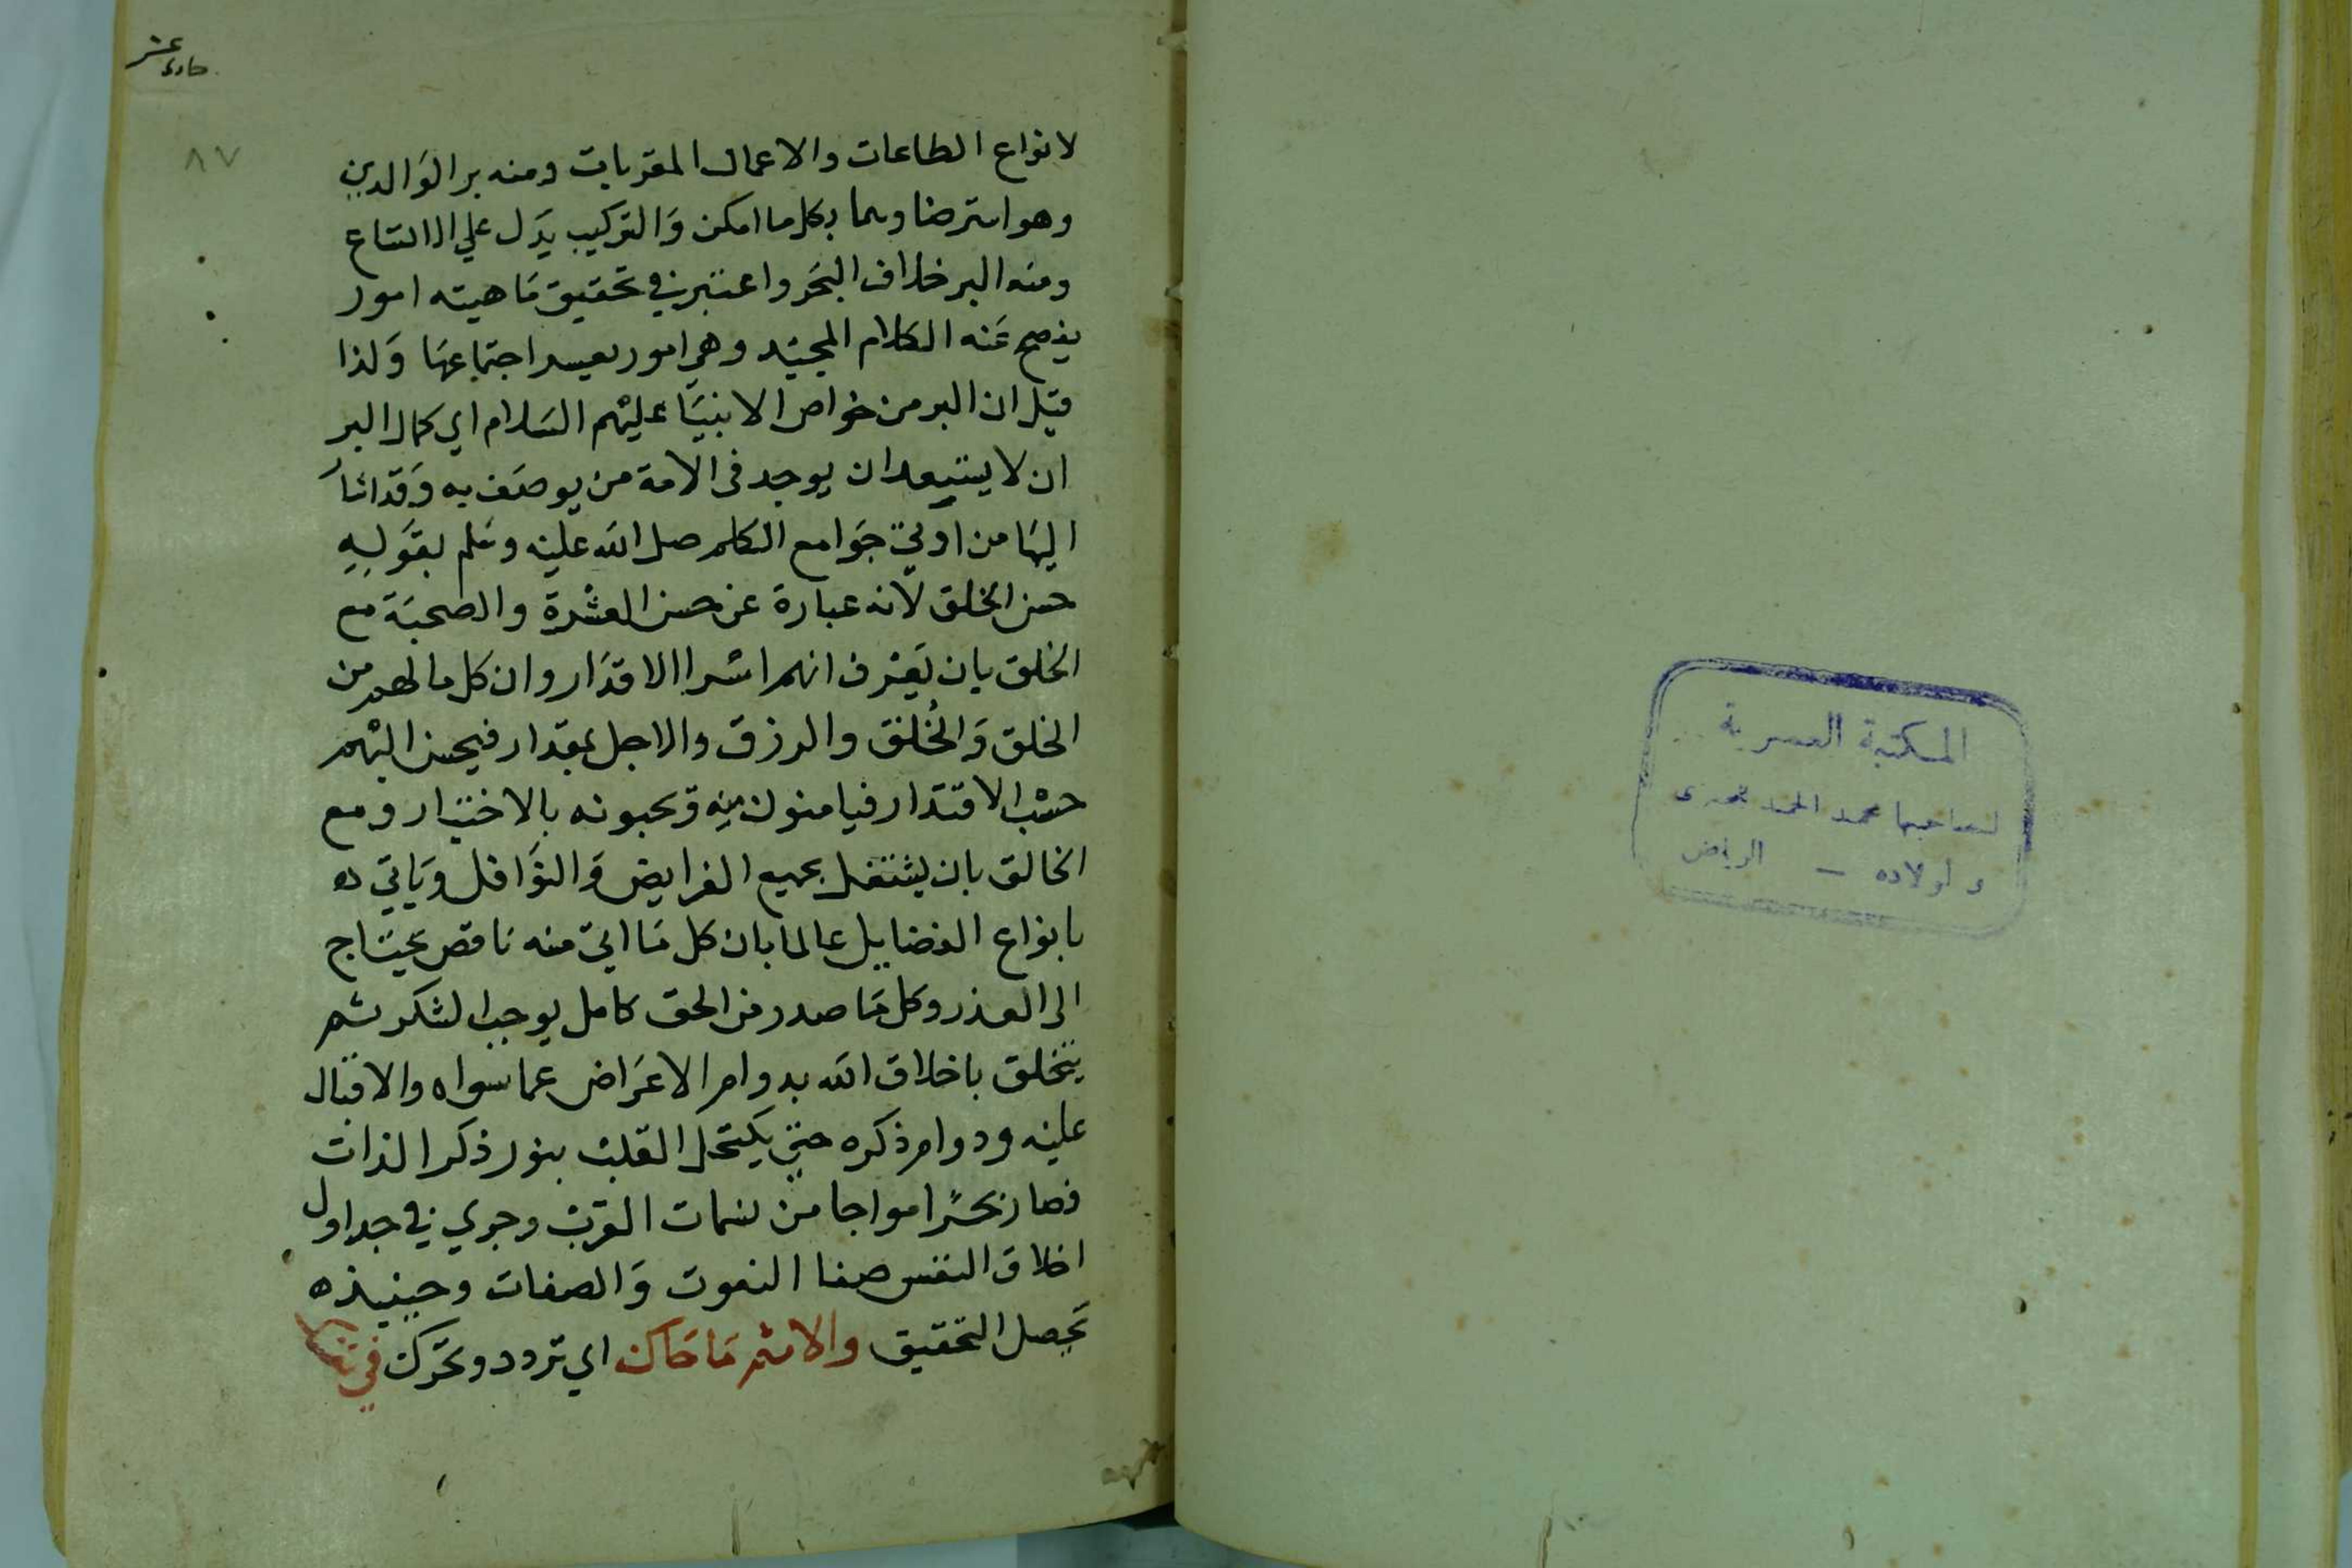 حادى عشر
٨٧
لانواع الطاعات والاعمال المقربات ومنه بر الوَالدين
وهو استرضاوهما بكل ما امكن وَالتركيب يَدل علي الاتساع
ومنه البر خلاف البحَر واعتبر في تحقيق مَاهيته امور
يفصح عَنه الكلام المجيَد وهي امور يعسر اجتماعهَا وَلذا
قيَل ان البر من خواص الانبيَا عليْهم السَلام اي كمال البر
ان لا يستبعد ان يوجد فى الامة من يوصَف به وَقد اشا
اليهَا من اوتي جوَامع الكلم صلى الله عليْه وسَلم بقوَله
حسن الخلق لانه عبارة عن حسن العشْرة والصحبَة مع
الخلق بان يَعرف انهم اسرا الاقدَار وان كل ما لهم من
الخلق وَالخُلق والرزق والاجل بمقدار فيحسن اليْهم
حسْب الاقتدَار فيامنون منه وَيحبونه بالاختيار ومع
الخالق بان يشتغل بجميع الفرايض وَالنوَافل وَياتي ده
بانواع الفضايل عالما بان كل مَا اتي منه ناقص يحتَاج
الى العذر وكل مَا صدر من الحق كامل يوجب الشكر ثم
يتخلق باخلاق الله بدوام الاعرَاض عما سواه والاقبال
عليْه ودوام ذكره حتي يكتحل القلب بنور ذكر الذات
فصار بحرًا مواجا من نسمات القرب وجري في جداول
اخلاق النفس صفا النعوت وَالصفات وحينيذه
يَحصل التحقيق والاثم مَا حَاك اي تردد وتحَرك في
المكتبة العصرية
لصاحبها محمد الحمد
واولاده — الرياض